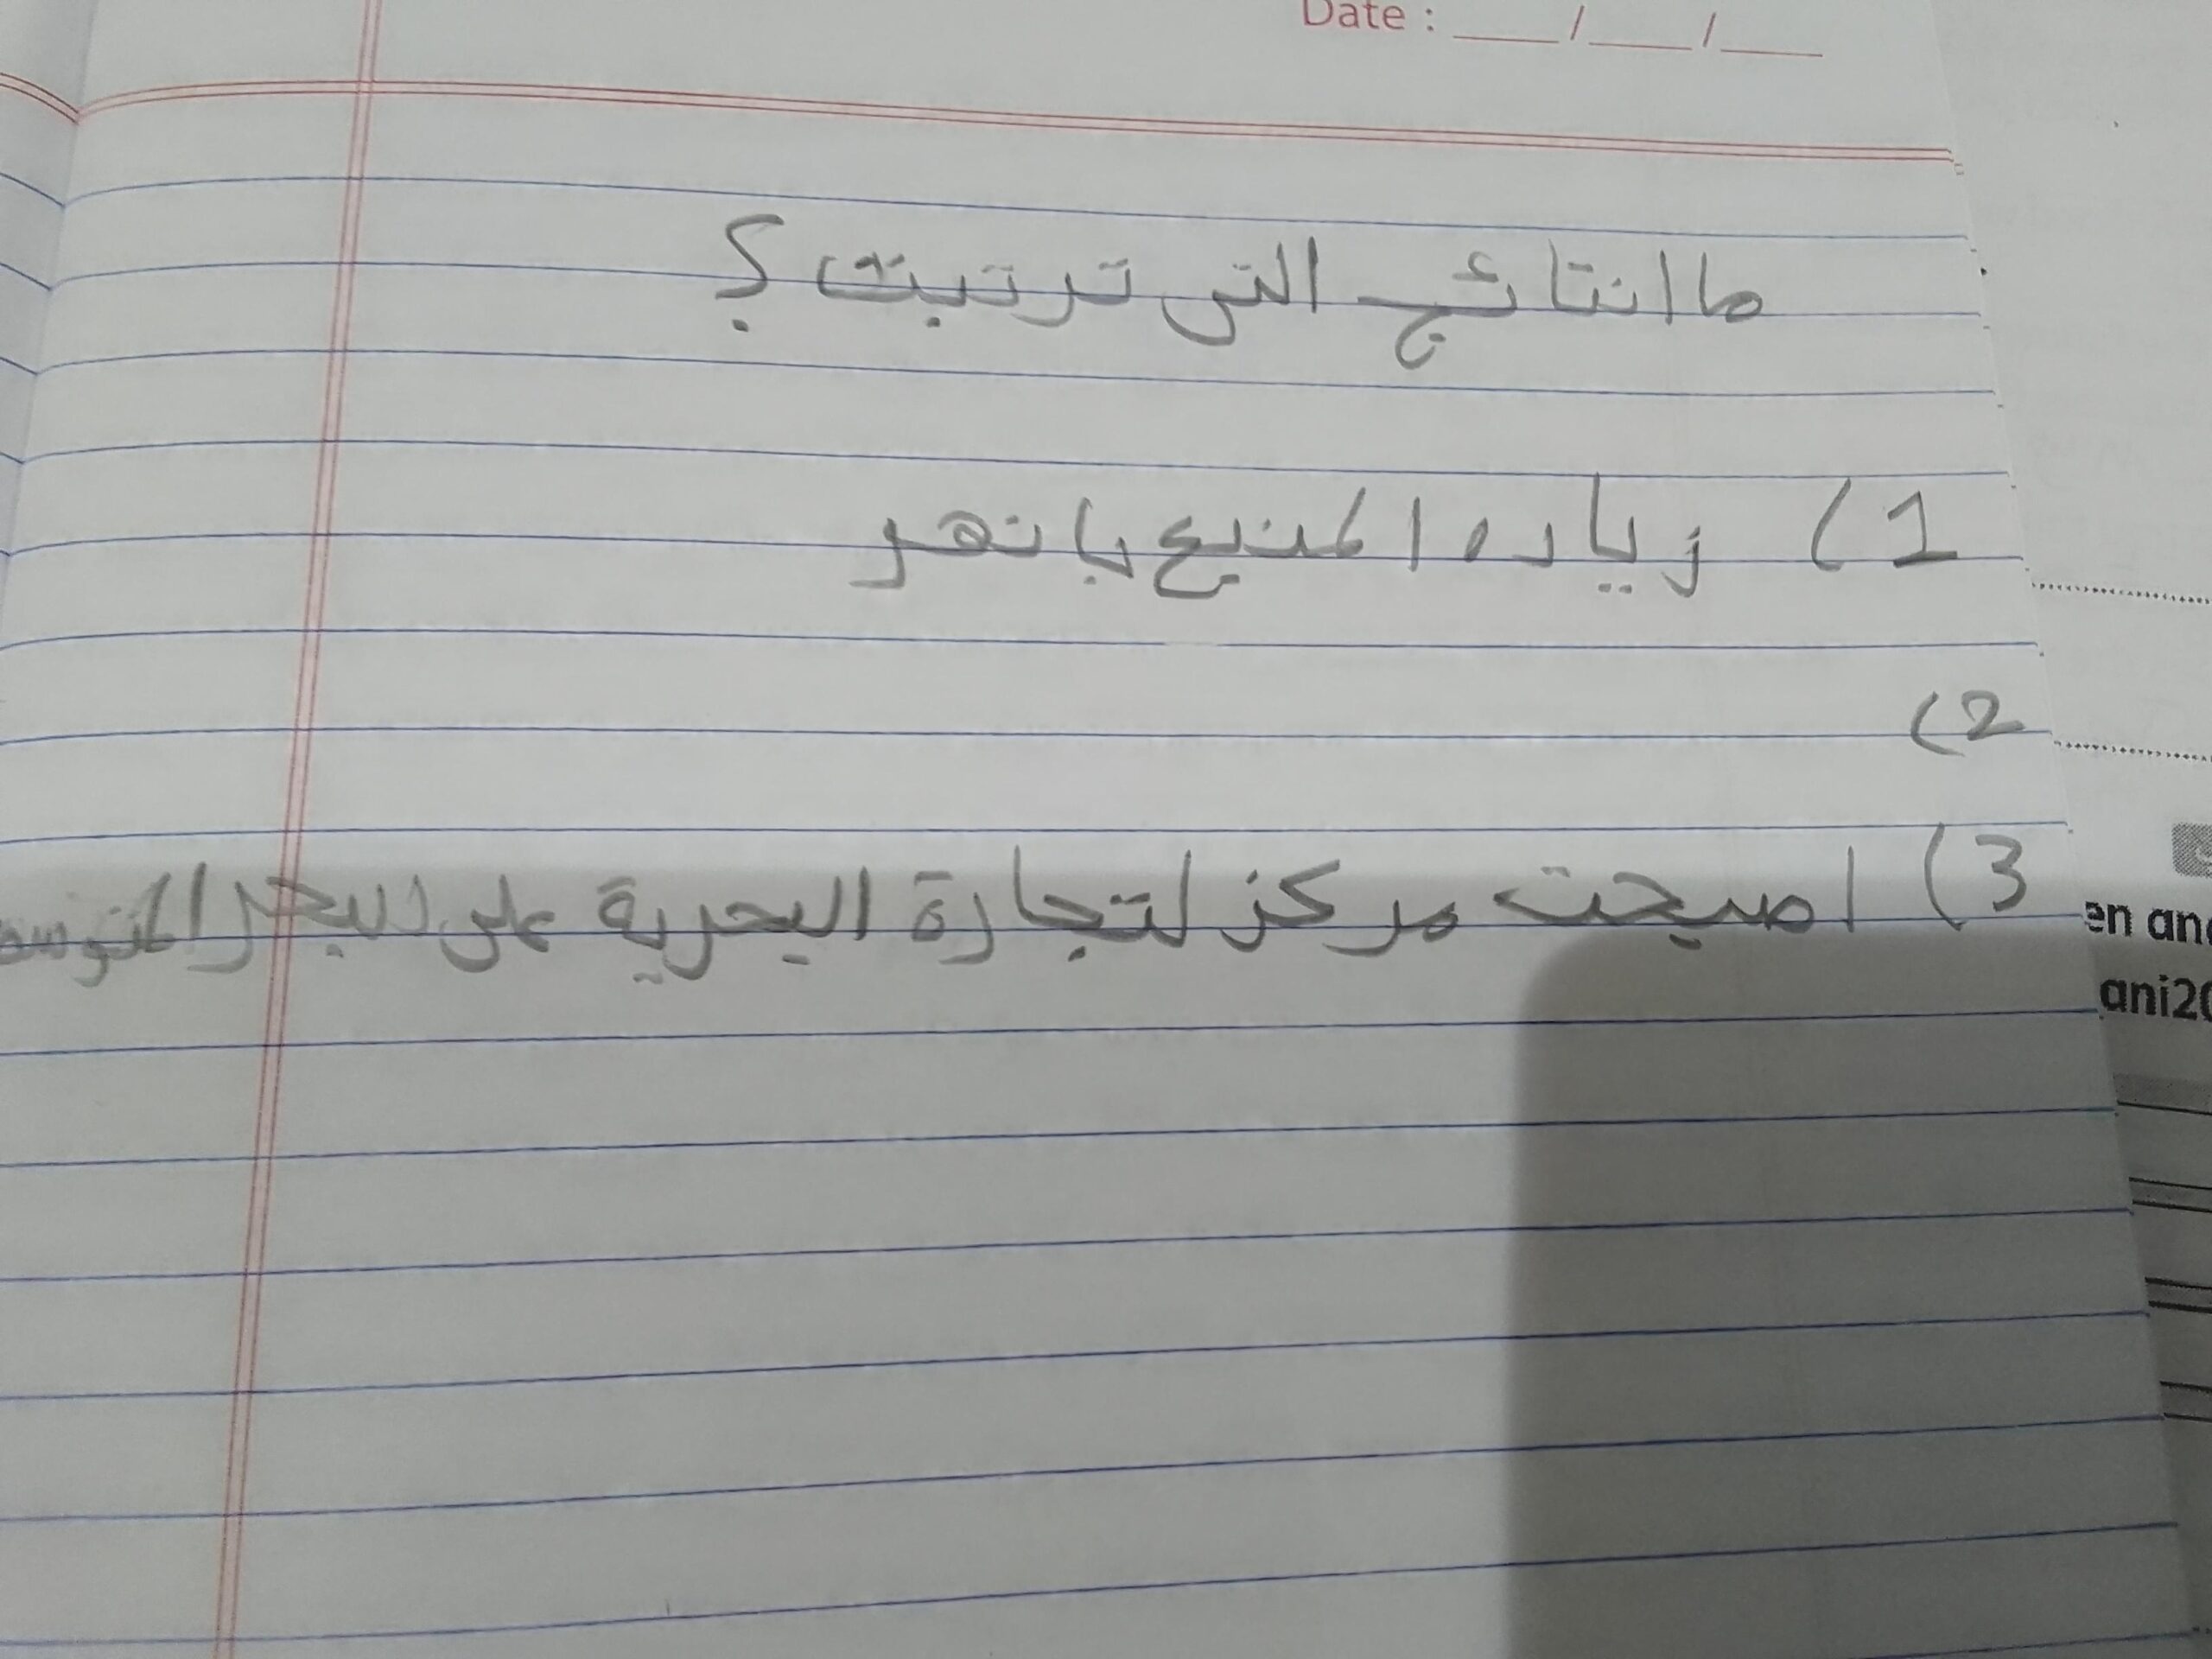 Date : ___/___/___
ما انتائج التى ترتبت ؟
1) زياده ا بانهر
2)
3) اصبحت مركز لتجارة البحرية على للبحر المتوسط
en and
ani20